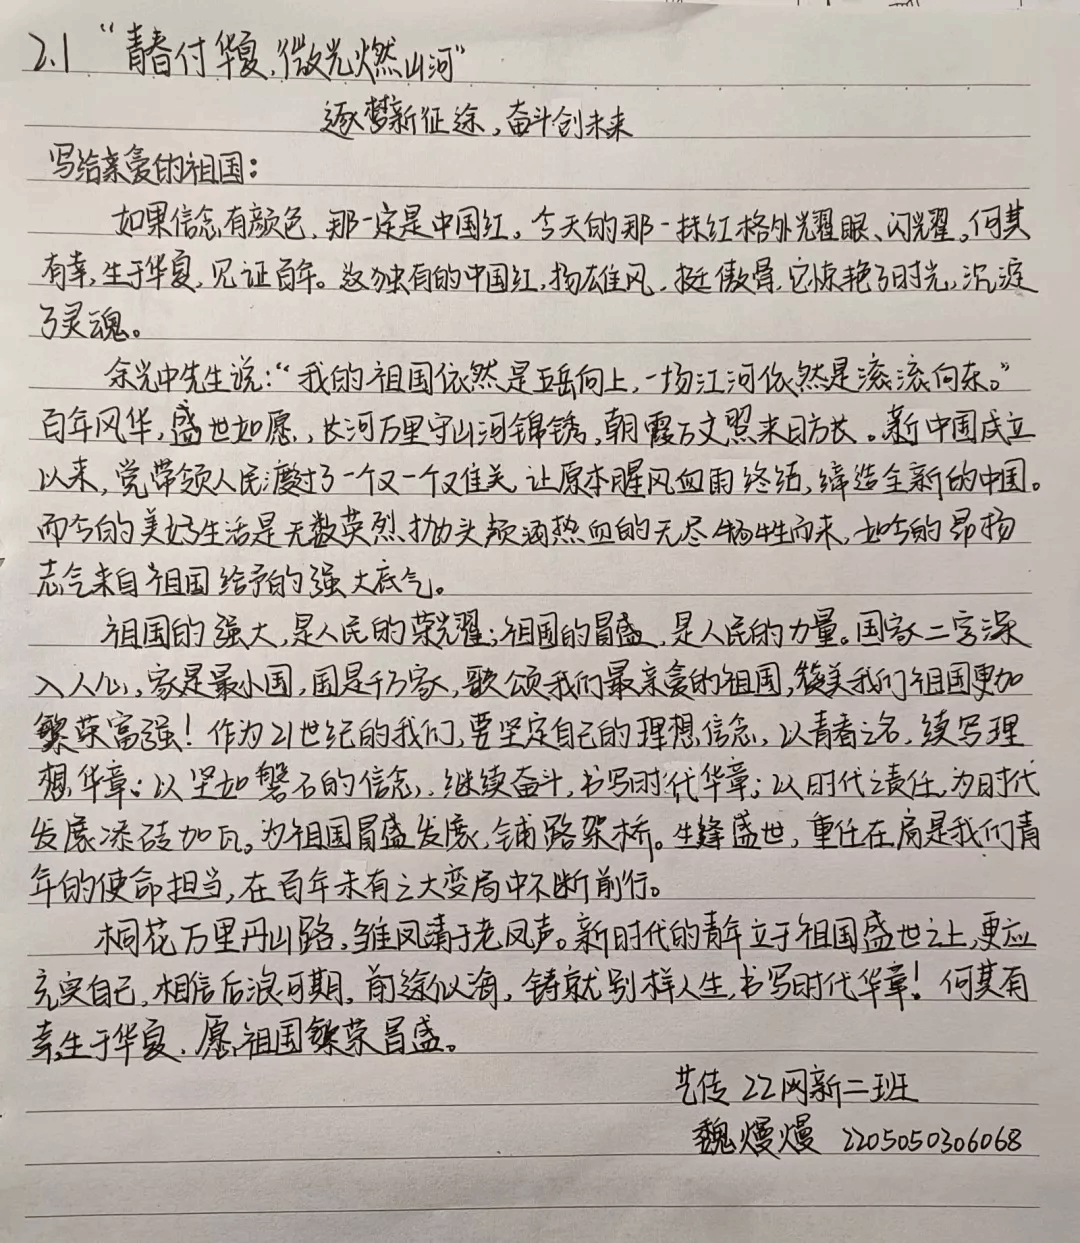 2.1 “青春付华夏,微光燃山河”
逐梦新征途,奋斗创未来
写给亲爱的祖国:
如果信念有颜色,那一定是中国红。今天的那一抹红格外耀眼、闪耀。何其
有幸,生于华夏,见证百年。这独有的中国红,扬雄风,挺傲骨,它惊艳了时光,沉淀
了灵魂。
余光中先生说:“我的祖国依然是五岳向上,一场江河依然是滚滚向东。”
百年风华,盛世如愿,长河万里守山河锦锈,朝霞万丈照来日方长。新中国成立
以来,党带领人民渡过了一个又一个难关,让原本腥风血雨终结,缔造全新的中国。
而今的美好生活是无数英烈抛头颅洒热血的无尽牺牲而来,如今的昂扬
志气来自祖国给予的强大底气。
祖国的强大,是人民的荣耀;祖国的昌盛,是人民的力量。国家二字深
入人心,家是最小国,国是千万家,歌颂我们最亲爱的祖国,赞美我们祖国更加
繁荣富强!作为21世纪的我们,要坚定自己的理想信念,以青春之名,续写理
想华章;以坚如磐石的信念,继续奋斗,书写时代华章;以时代之责任,为时代
发展添砖加瓦。为祖国昌盛发展,铺路架桥。生逢盛世,重任在肩是我们青
年的使命担当,在百年未有之大变局中不断前行。
桐花万里丹山路,雏凤清于老凤声。新时代的青年立于祖国盛世之上,更应
充实自己,相信后浪可期,前途似海,铸就别样人生,书写时代华章!何其有
幸,生于华夏,愿祖国繁荣昌盛。
艺传22网新二班
魏熳熳 2205050306068